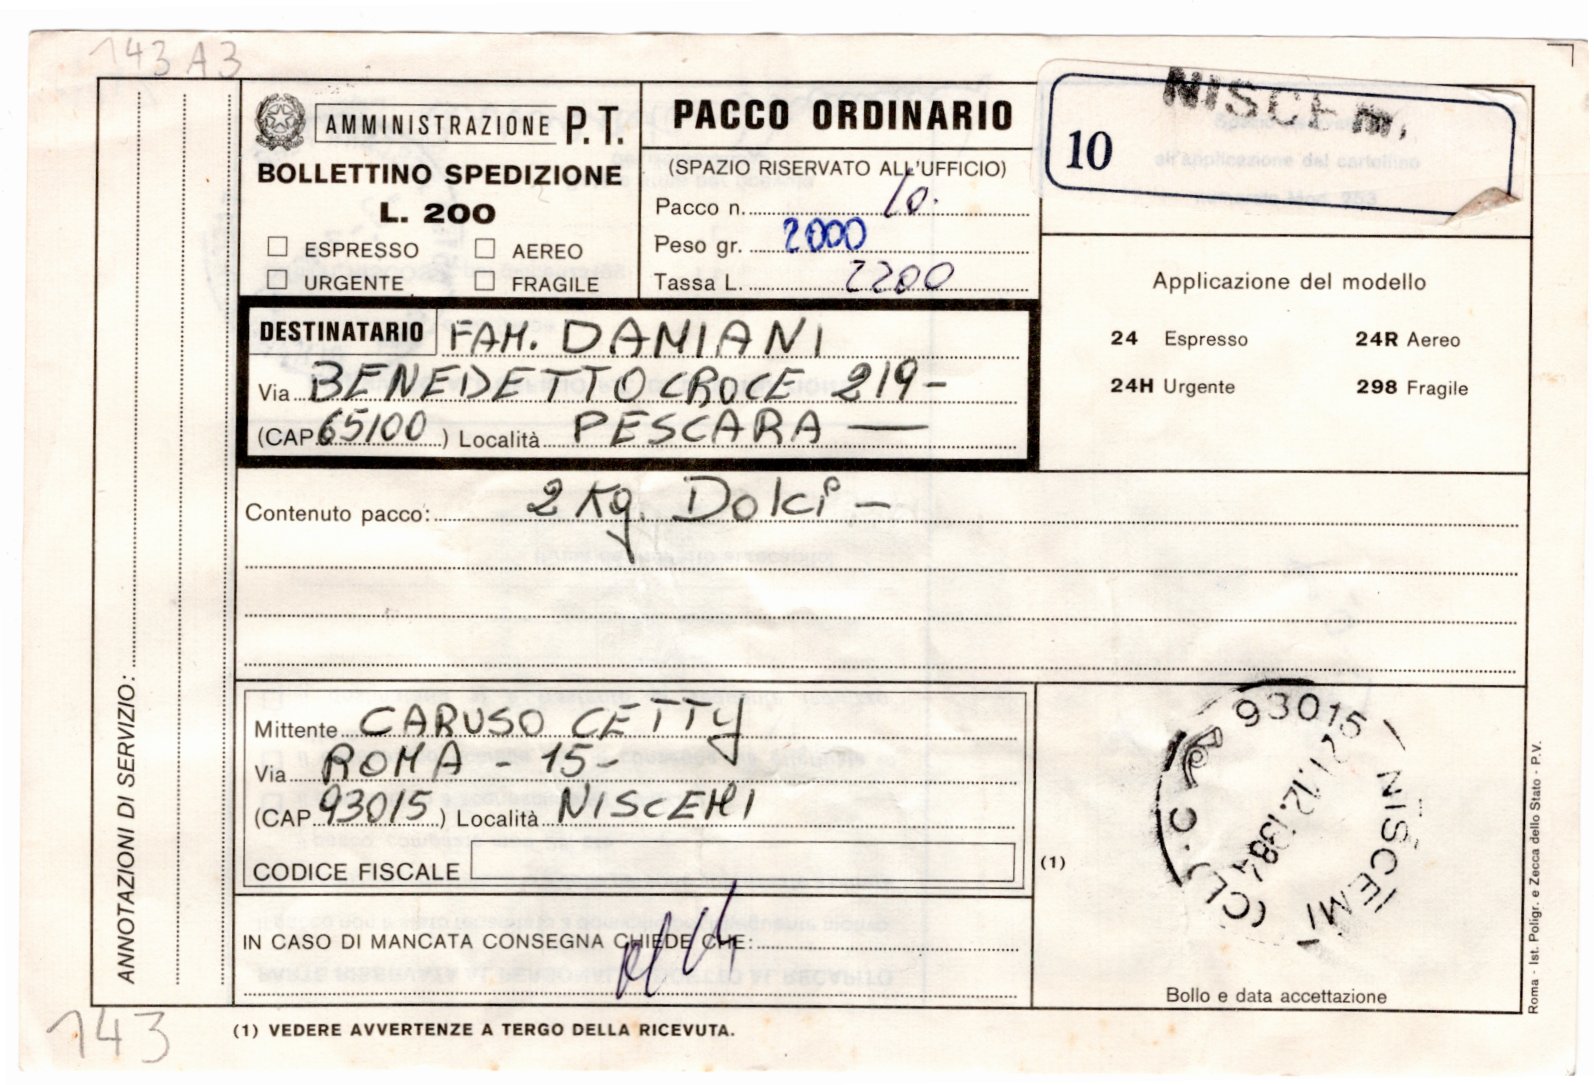 143 A3
AMMINISTRAZIONE P.T.
BOLLETTINO SPEDIZIONE
L. 200
ESPRESSO AEREO
URGENTE FRAGILE
PACCO ORDINARIO
(SPAZIO RISERVATO ALL'UFFICIO)
Pacco n. 10.
Peso gr. 2000
Tassa L. 2200
NISCEMI
10
Applicazione del modello
24 Espresso 24R Aereo
24H Urgente 298 Fragile
DESTINATARIO FAM. DAMIANI
Via BENEDETTO CROCE 219-
(CAP 65100) Località PESCARA —
Contenuto pacco: 2 Kg. Dolci -
ANNOTAZIONI DI SERVIZIO:
Mittente CARUSO CETTY
Via ROMA 15-
(CAP 93015) Località NISCEMI
CODICE FISCALE
IN CASO DI MANCATA CONSEGNA CHIEDE CHE:
(1)
93015 NISCEMI (CL)
21.12.1984
Bollo e data accettazione
Roma - Ist. Poligr. e Zecca dello Stato - P.V.
(1) VEDERE AVVERTENZE A TERGO DELLA RICEVUTA.
143